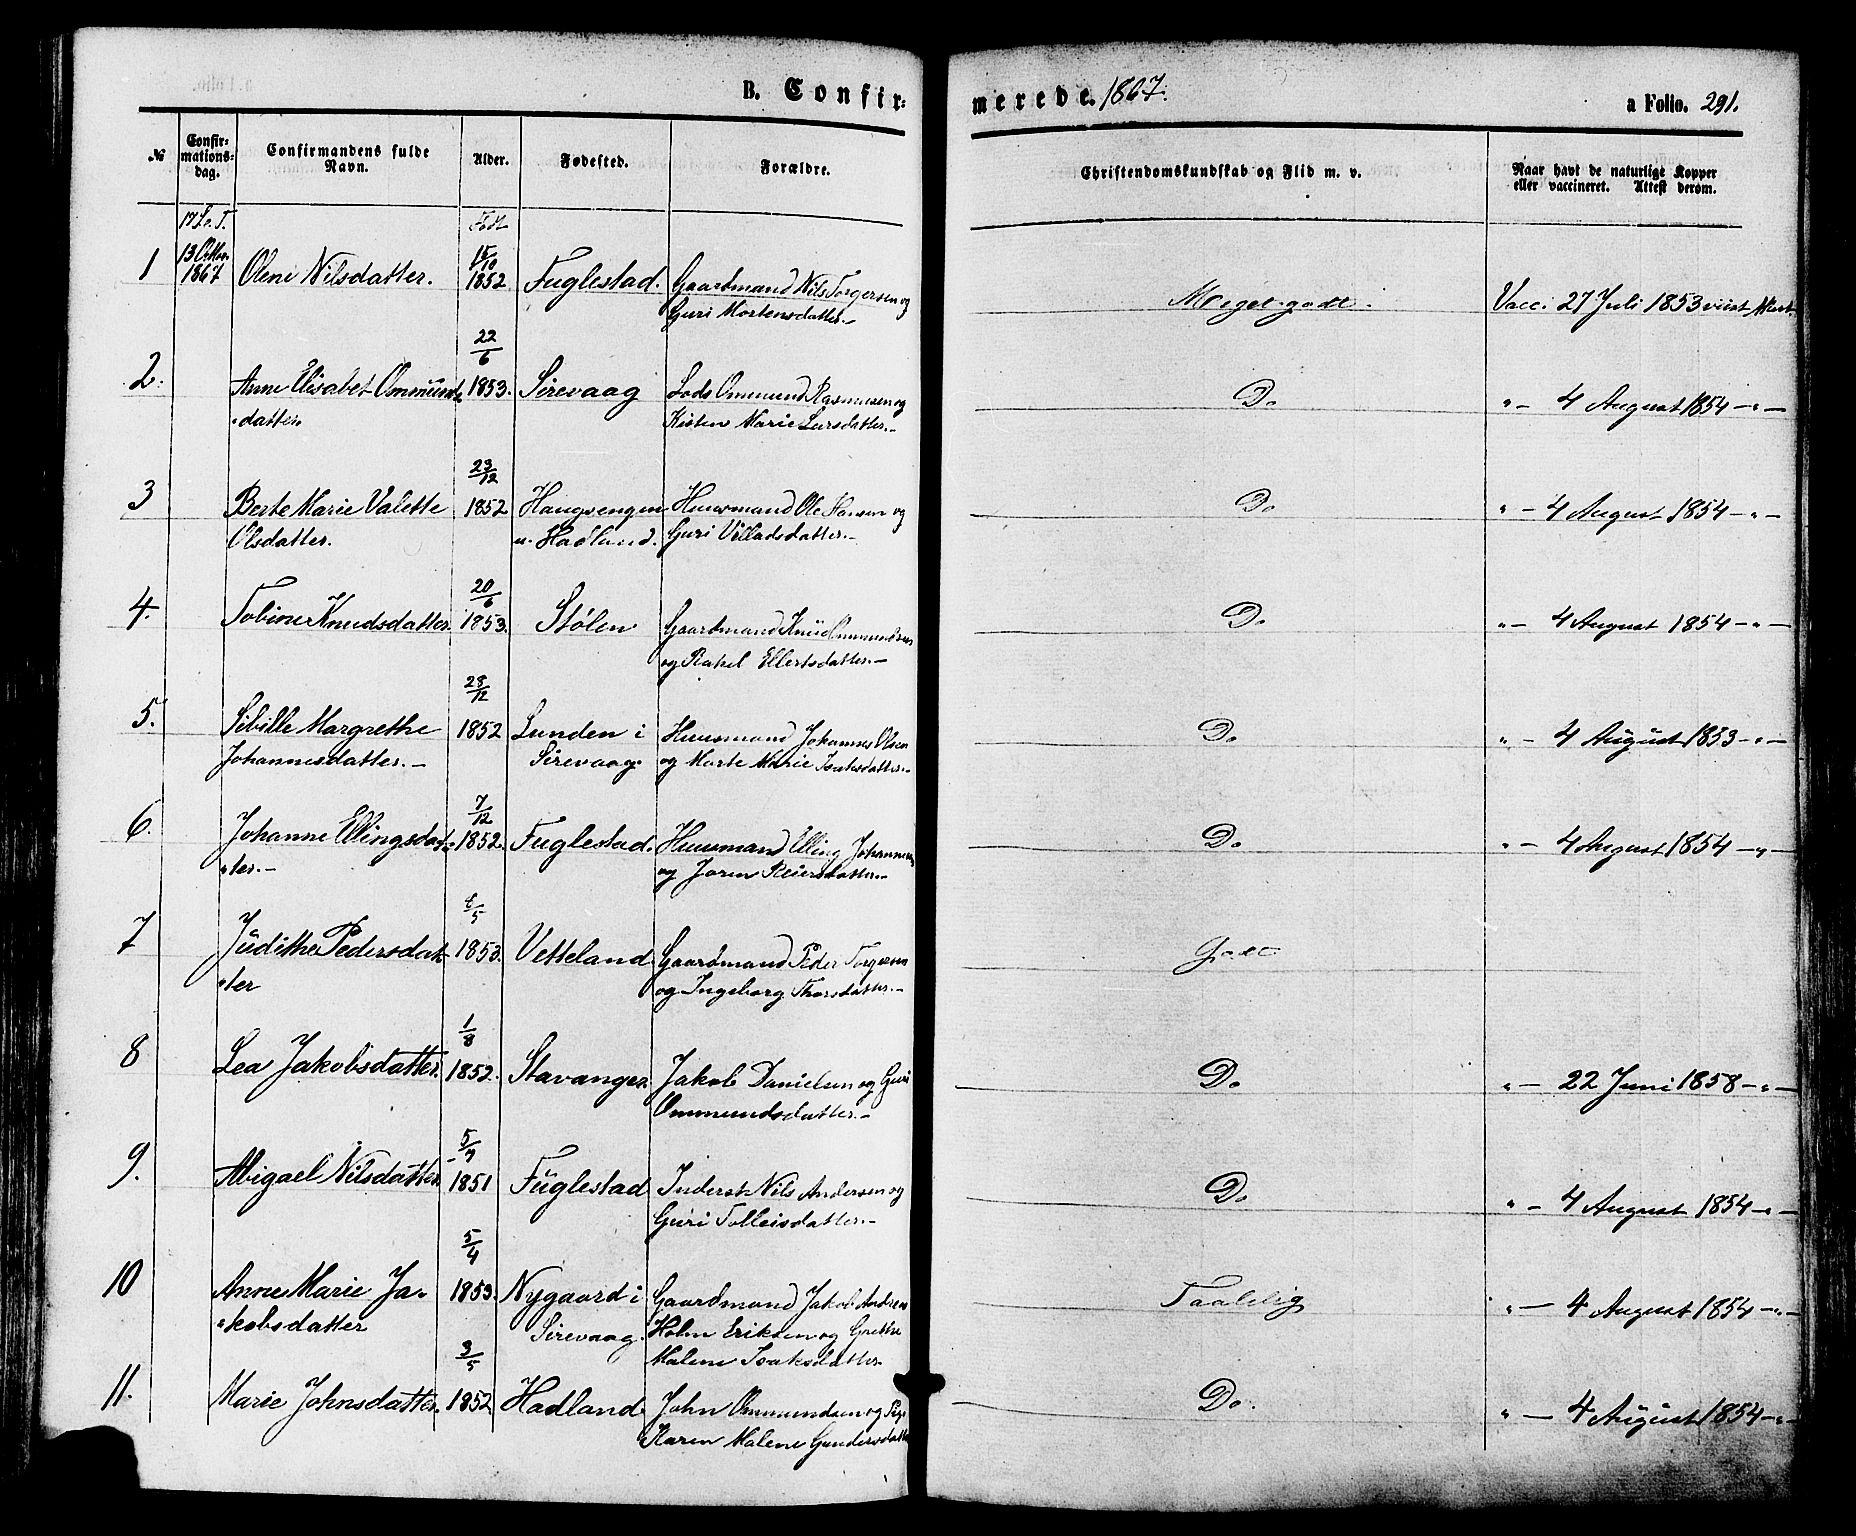 B. Confir-
merede. 1867.
a Folio. 291.
№
Confir-
mations-
dag.
Confirmandens fulde
Navn.
Alder.
Fødested.
Forældre.
Christendomskundskab og Flid m. v.
Naar havt de naturlige Kopper
eller vaccineret. Attest derom.
17 S. e. T.
Født
1
13 Octbr.
1867
Oleni Nilsdatter.
15/10
1852
Fuglestad.
Gaardmand Nils Torgersen og
Guri Mortensdatter.—
Meget godt.
Vacc. 27 Juli 1853 viist Attest.
2.
Anne Elisabet Ommunds-
datter.
22/6
1853.
Sirevaag
Lods Ommund Rasmusen og
Kisten Marie Larsdatter.—
Do
" — 4 August 1854 —"—
3
Berte Marie Valette
Olsdatter.
23/12
1852
Haugsengen
u. Hadland.
Huusmand Ole Hansen og
Guri Villadsdatter.—
Do
" — 4 August 1854 —"—
4.
Tobine Knudsdatter.
20/6
1853.
Stølen
Gaardmand Knud Ommundsen
og Rakel Ellertsdatter.—
Do
" — 4 August 1854 —"—
5.
Sibille Margrethe
Johannesdatter.—
28/12
1852
Lunden i
Sirevaag.
Huusmand Johannes Olsen
og Marte Marie Isaksdatter.—
Do
" — 4 August 1853 —"—
6.
Johanne Ellingsdat-
ter.—
7/12
1852.
Fuglestad.
Huusmand Elling Johannesen
og Joren Reiersdatter.—
Do
" — 4 August 1854 —"—
7
Judithe Pedersdat-
ter
/5
1853.
Vetteland.
Gaardmand Peder Torgersen
og Ingeborg Thorsdatter.—
Godt
8
Lea Jakobsdatter.
1/8
1852.
Stavanger.
Jakob Danielsen og Guri
Ommundsdatter.—
Do
" — 22 Juni 1858 —"—
9.
Abigael Nilsdatter.
5/9
1851
Fuglestad
Inderst Nils Andersen og
Guri Tolleisdatter.—
Do
" — 4 August 1854 —"—
10
Anne Marie Ja-
kobsdatter
5/4
1853.
Nygaard i
Sirevaag.
Gaardmand Jakob Andreas
Holm Eriksen og Grethe
Malene Isaksdatter.
Taalelig
" — 4 August 1854 —"—
11.
Marie Johnsdatter.
3/5
1852
Hadland.
John Ommundsen og Pige
Karen Malene Gundersdatter
Do.
" — 4 August 1854 —"—